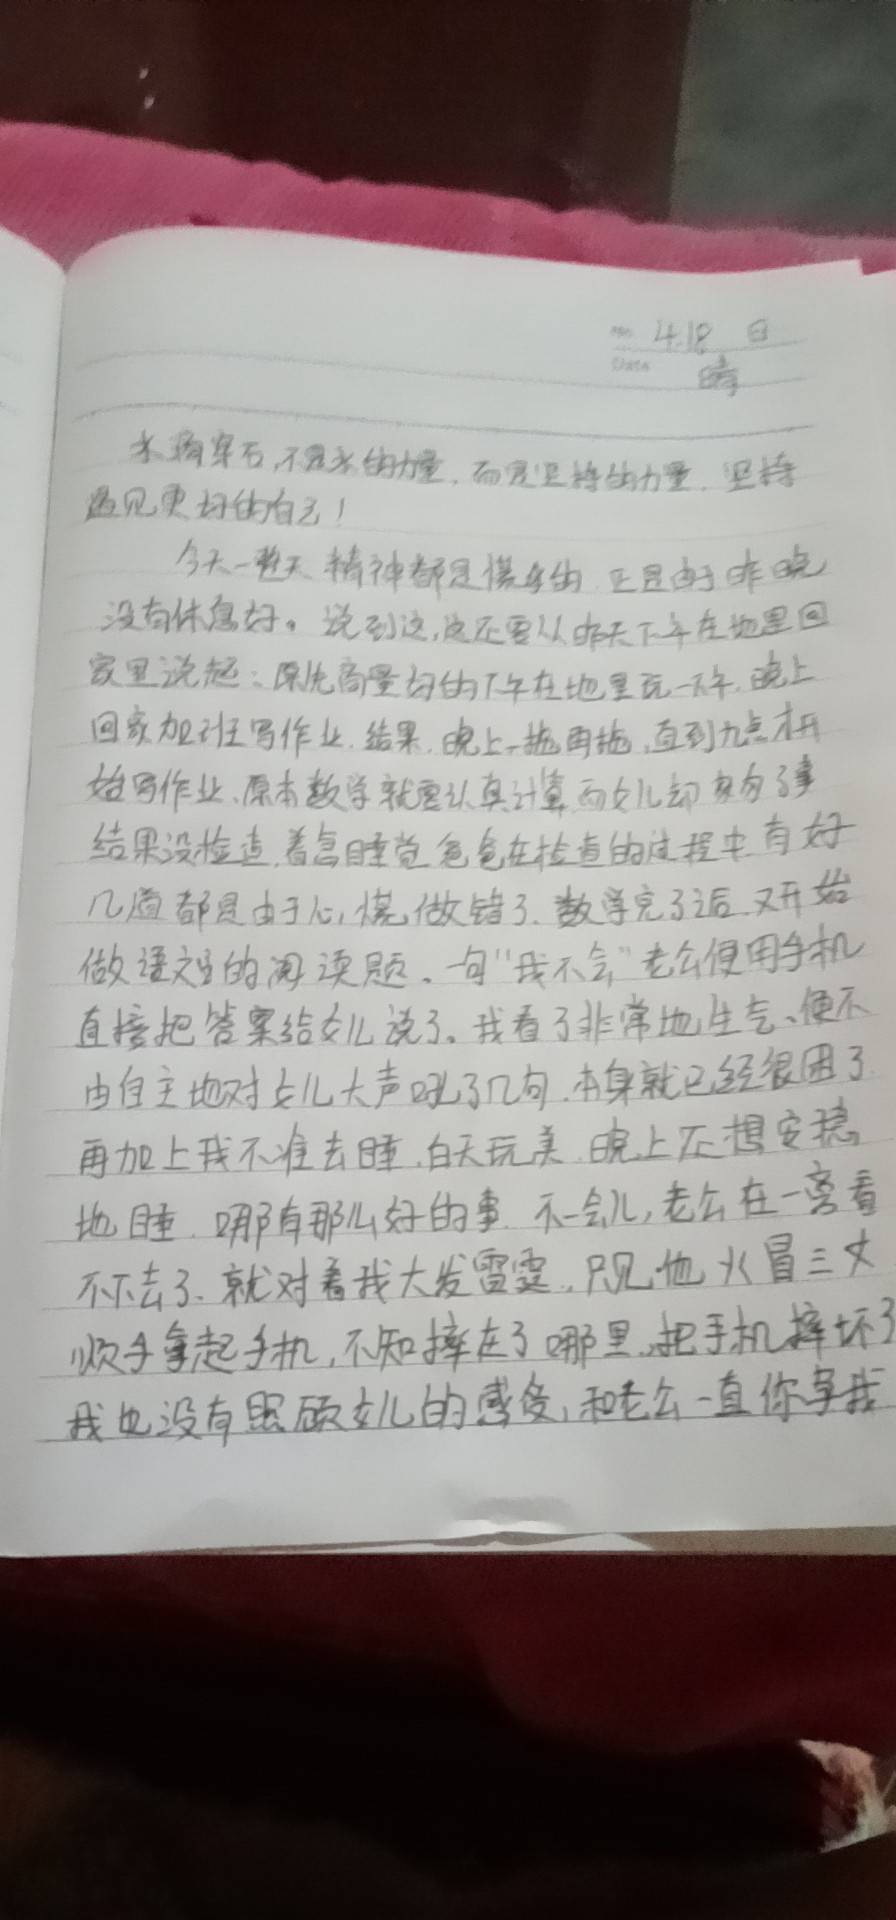 No. 4.18 日
Date 晴
水滴穿石,不是水的力量,而是坚持的力量,坚持
遇见更好的自己!
今天一整天精神都是慌乎的,正是由于昨晚
没有休息好。说到这,这还要从昨天下午在地里回
家里说起:原先商量好的下午在地里玩一下午,晚上
回家加班写作业.结果,晚上一拖再拖,直到九点才开
始写作业、原本数学就要认真计算而女儿却为了事
结果没检查,着急睡觉爸爸在检查的过程中有好
几道都是由于心慌做错了.数学完了后,又开始
做语文的阅读题、一句“我不会”老公便用手机
直接把答案给女儿说了。我看了非常地生气、便不
由自主地对女儿大声吼了几句.本身就已经很困了
再加上我不准去睡,白天玩美,晚上还想安稳
地睡,哪有那么好的事.不一会儿,老公在一旁看
不下去了、就对着我大发雷霆,只见他火冒三丈
顺手拿起手机,不知摔在了哪里,把手机摔坏了
我也没有照顾女儿的感受,和老公一直你争我